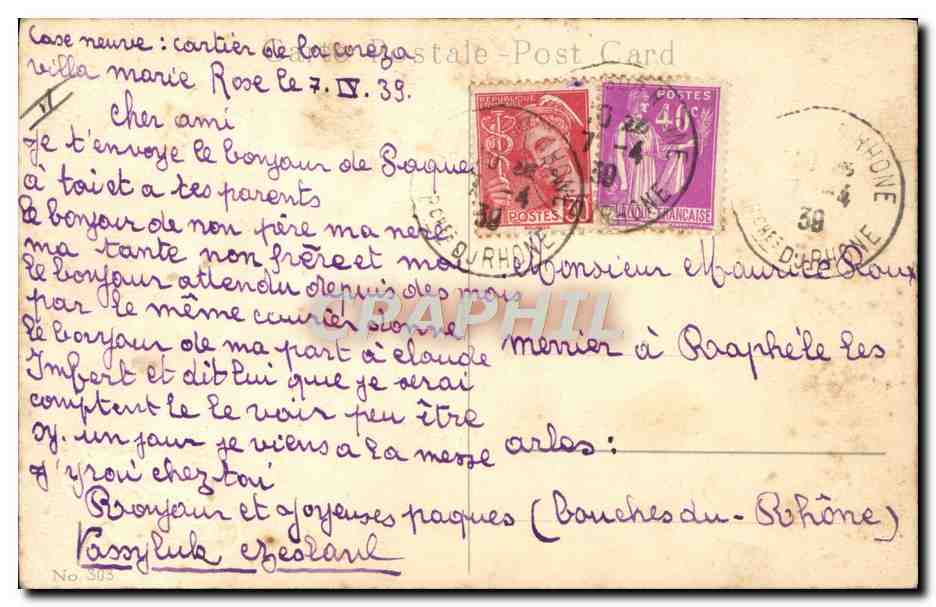 Carte Postale - Post Card
Case neuve : cartier de la coreza
villa marie Rose le 7. IV. 39.
cher ami
Je t'envoye le bonjour de Paques
à toi et a tes parents
Le bonjour de non père ma nere
ma tante non frère et moi
Le bonjour attendu depuis des mois
par le même courier donne
Le bonjour de ma part à claude
Imbert et dit lui que je serai
comptent le le voir peu être
sy. un jour je viens a la messe
j'yrai chez toi
Bonjour et Joyeuses paques
Vassyluk
No. 303
REPUBLIQUE
POSTES
POSTES
40c
FRANÇAISE
DU RHONE
7 -4
39
RHONE
-4
39
DU RHONE
Monsieur Maurice Roux
menier à Raaphéle les
arles :
(Bouches du - Rhône)
CPAPHIL